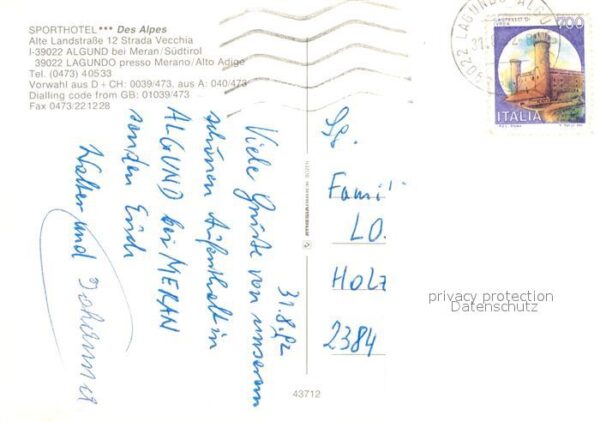 SPORTHOTEL*** Des Alpes
Alte Landstraße 12 Strada Vecchia
I-39022 ALGUND bei Meran/Südtirol
39022 LAGUNDO presso Merano/Alto Adige
Tel. (0473) 40533
Vorwahl aus D + CH: 0039/473, aus A: 040/473
Dialling code from GB: 01039/473
Fax 0473/221228
31.8.92
Viele Grüße von unserem
schönen Aufenthalt in
ALGUND bei MERAN
senden Euch
Walter und Johanna
39022 LAGUNDO
CASTELLO DI
IVREA
700
ITALIA
Famil
LO.
HOLZ
2384
privacy protection
Datenschutz
43712